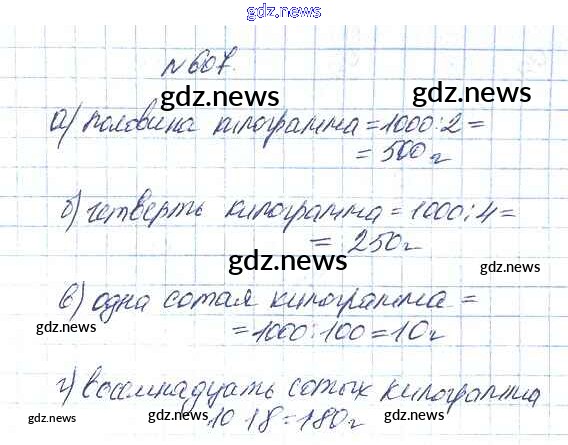 gdz.news
№ 607.
gdz.news gdz.news
а) половина килограмма = 1000 : 2 =
= 500 г
gdz.news
б) четверть килограмма = 1000 : 4 =
= 250 г
gdz.news gdz.news
в) одна сотая килограмма =
gdz.news = 1000 : 100 = 10 г gdz.news
г) восемнадцать сотых килограмма
gdz.news gdz.news 10 · 18 = 180 г gdz.news